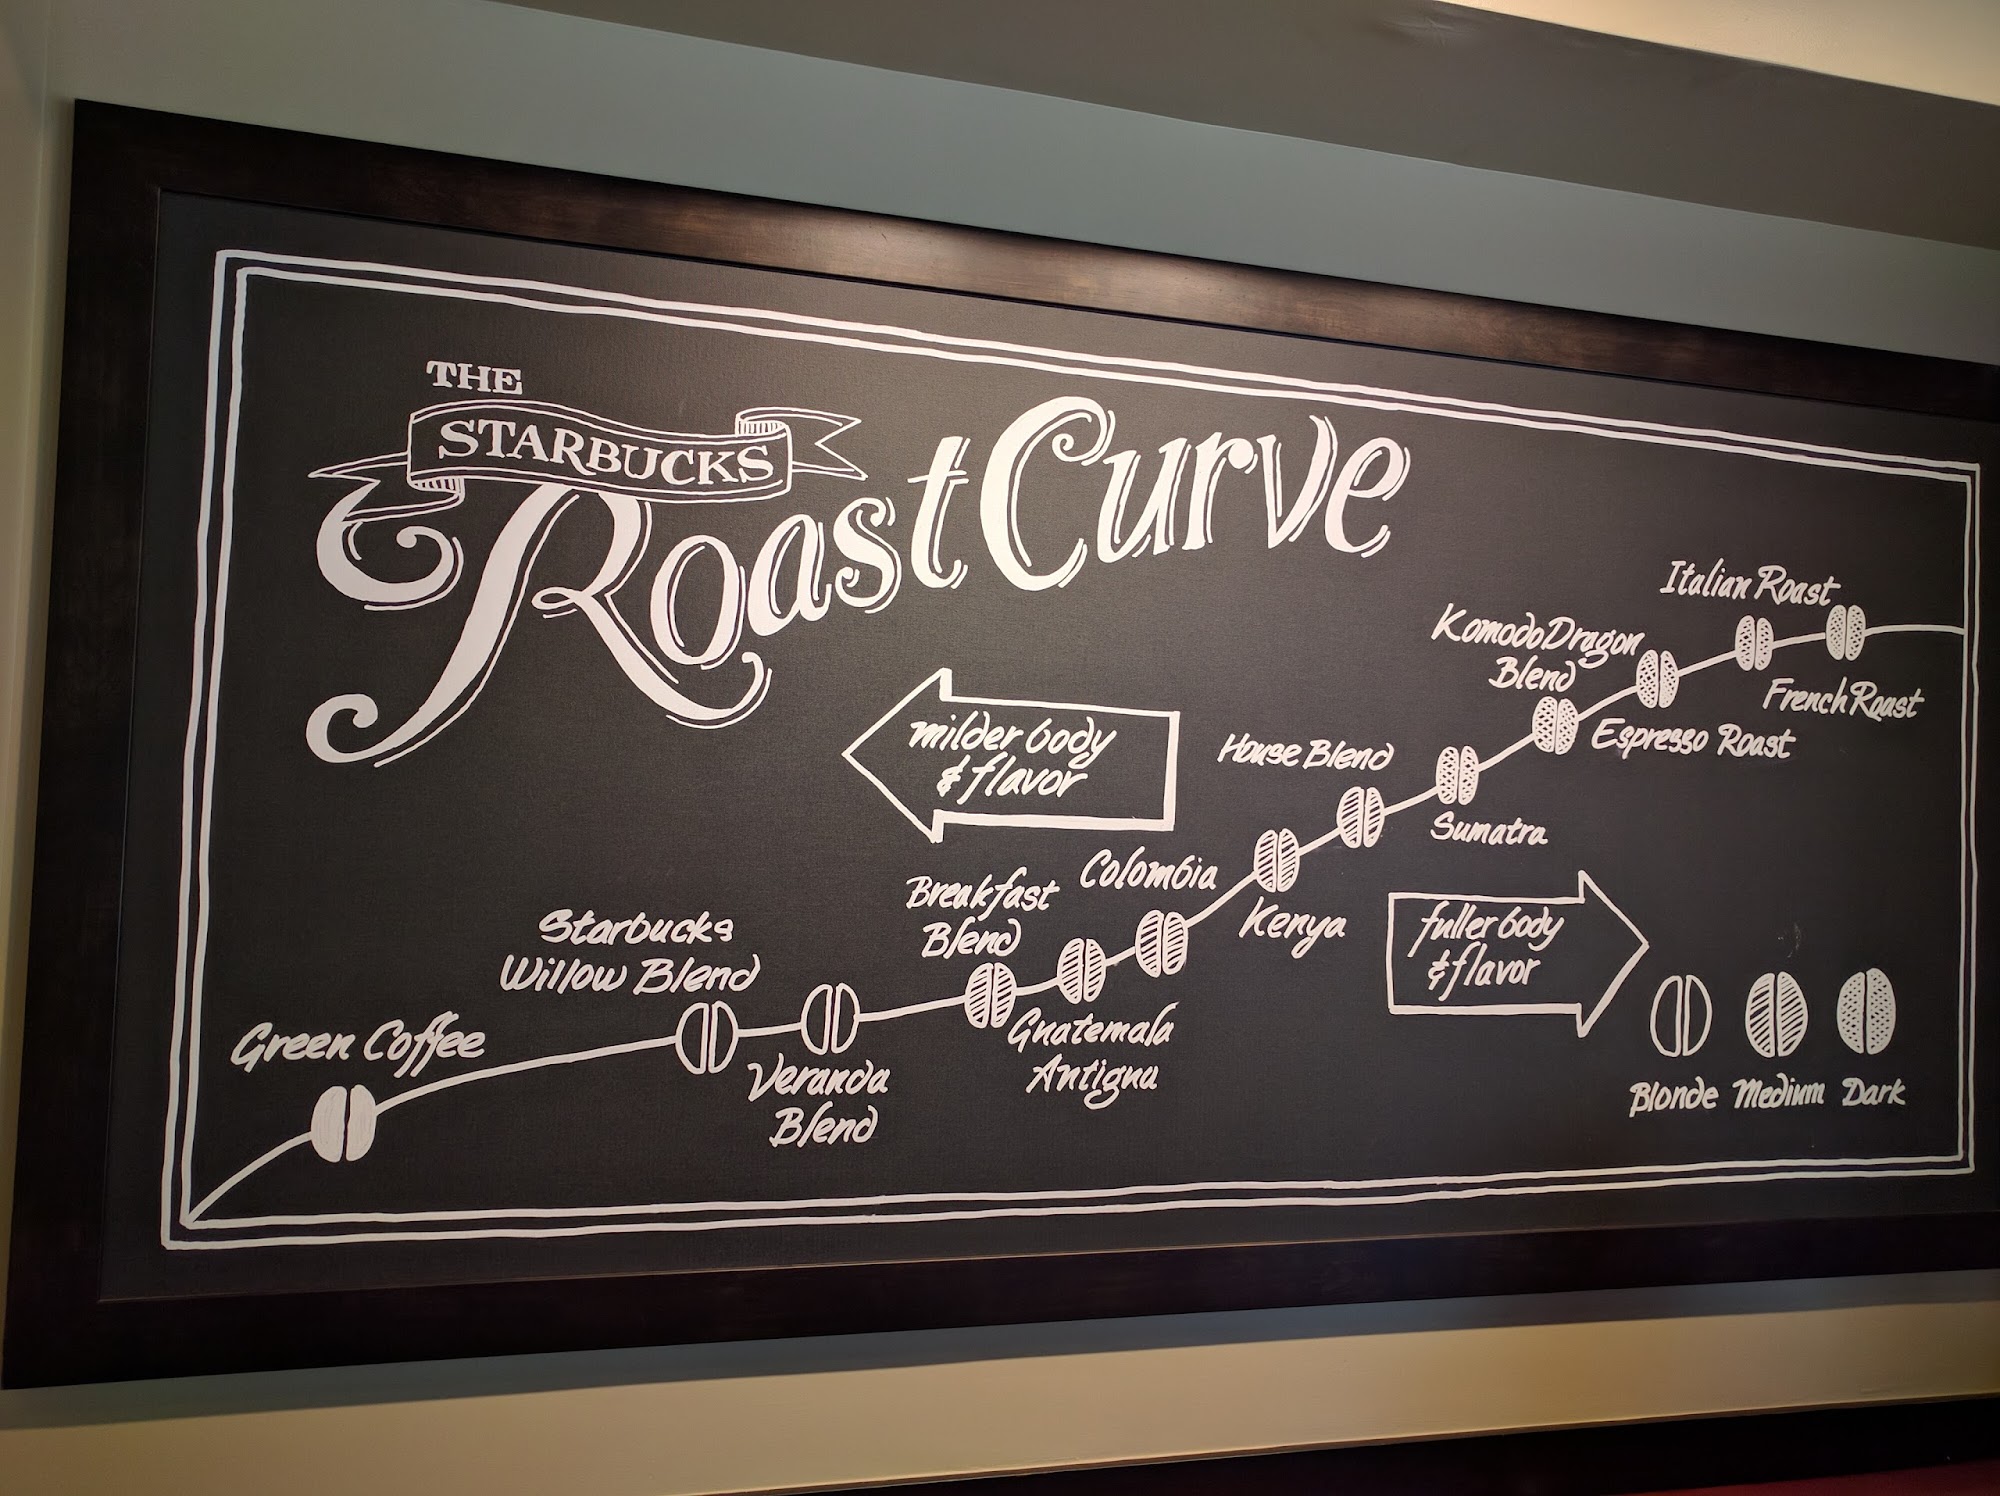 THE
STARBUCKS
Roast Curve
milder body
& flavor
Green Coffee
Starbucks
Willow Blend
Veranda
Blend
Breakfast
Blend
Guatemala
Antigua
Colombia
Kenya
House Blend
Sumatra
Komodo Dragon
Blend
Espresso Roast
Italian Roast
French Roast
fuller body
& flavor
Blonde Medium Dark